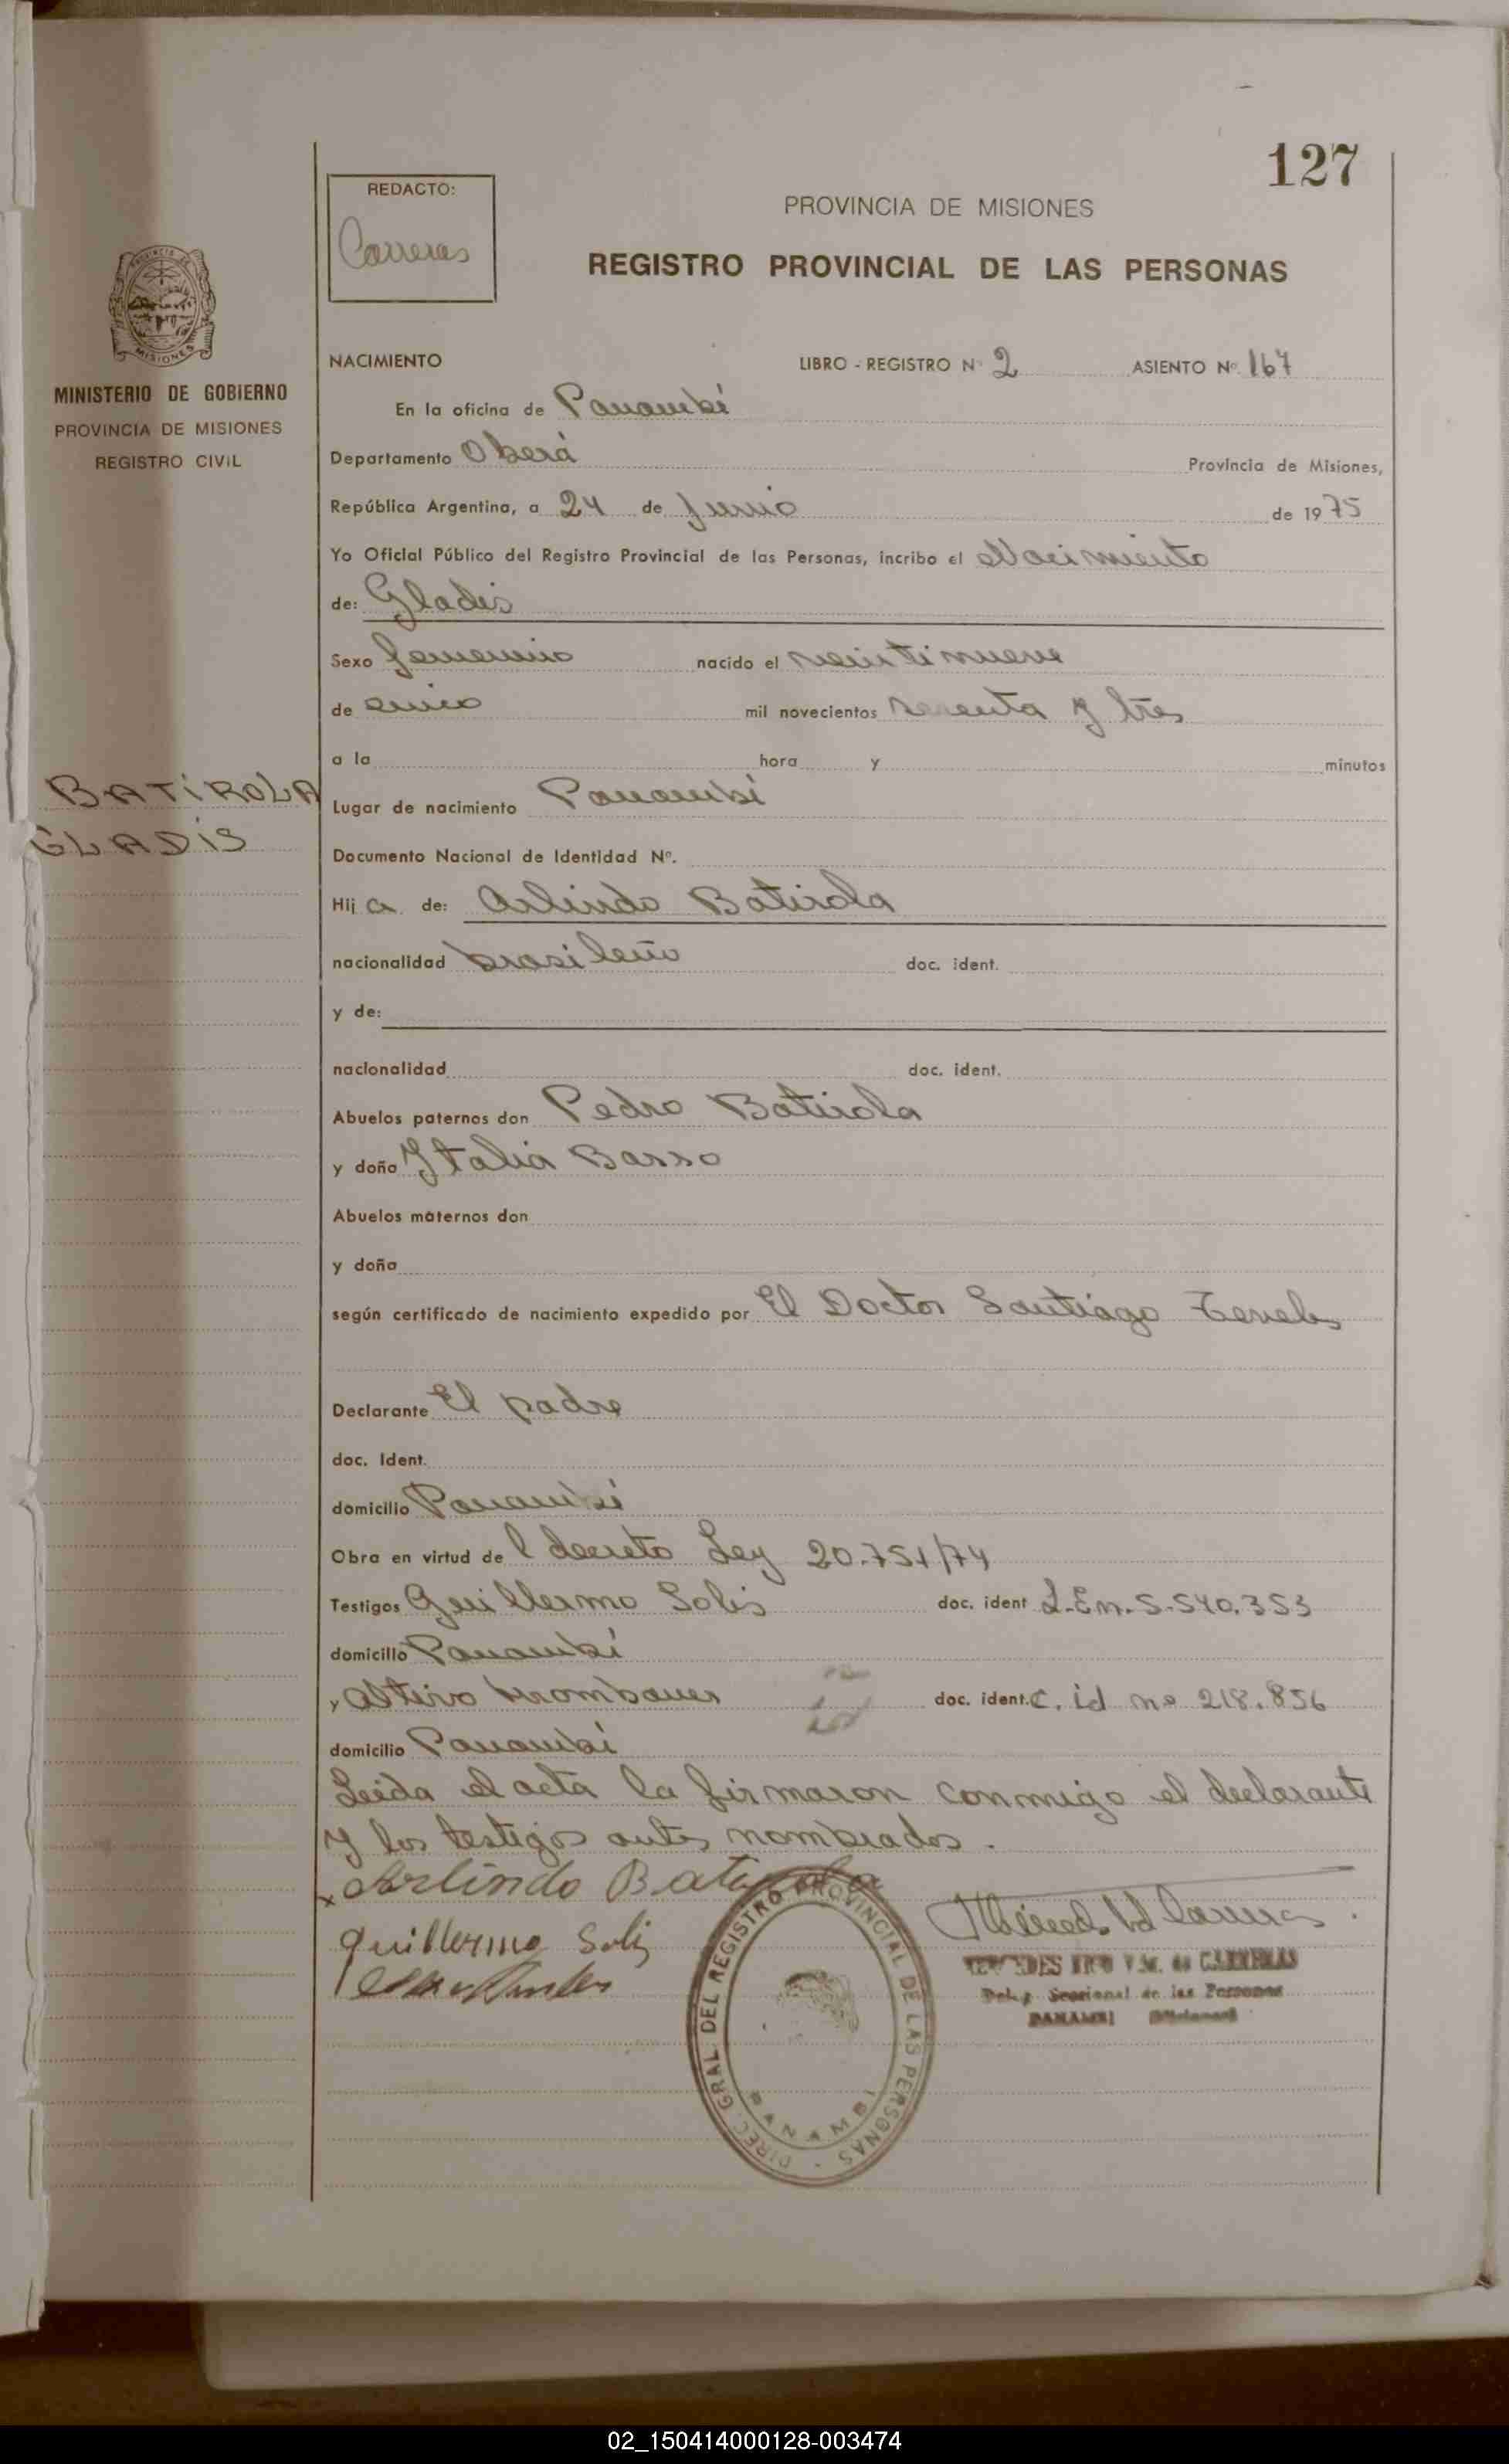 127
REDACTO:
Carreras
PROVINCIA DE MISIONES
REGISTRO PROVINCIAL DE LAS PERSONAS
PROVINCIA DE
MISIONES
MINISTERIO DE GOBIERNO
PROVINCIA DE MISIONES
REGISTRO CIVIL
BATIROLA
GLADIS
NACIMIENTO LIBRO - REGISTRO Nº 2 ASIENTO Nº 167
En la oficina de Panambí
Departamento Oberá Provincia de Misiones,
República Argentina, a 24 de Junio de 1975
Yo Oficial Público del Registro Provincial de las Personas, incribo el Nacimiento
de: Gladis
Sexo femenino nacido el veintinueve
de enero mil novecientos setenta y tres
a la hora y minutos
Lugar de nacimiento Panambí
Documento Nacional de Identidad Nº.
Hij a de: Arlindo Batirola
nacionalidad brasileño doc. ident.
y de:
nacionalidad doc. ident.
Abuelos paternos don Pedro Batirola
y doña Italia Basso
Abuelos maternos don
y doña
según certificado de nacimiento expedido por El Doctor Santiago
Declarante El padre
doc. Ident.
domicilio Panambí
Obra en virtud de l decreto Ley 20.751/74
Testigos Guillermo Solis doc. ident L.En. 5.540.353
domicilio Panambí
y Altivo Krombauer doc. ident. C. id nº 218.856
domicilio Panambí
Leida el acta la firmaron conmigo el declarante
y los testigos antes nombrados.
x Arlindo Batirola
Guillermo Solis
DIREC. GRAL. DEL REGISTRO PROVINCIAL DE LAS PERSONAS -
PANAMBI
de CARRERAS
Deleg. Seccional de las Personas
PANAMBI (Misiones)
02_150414000128-003474